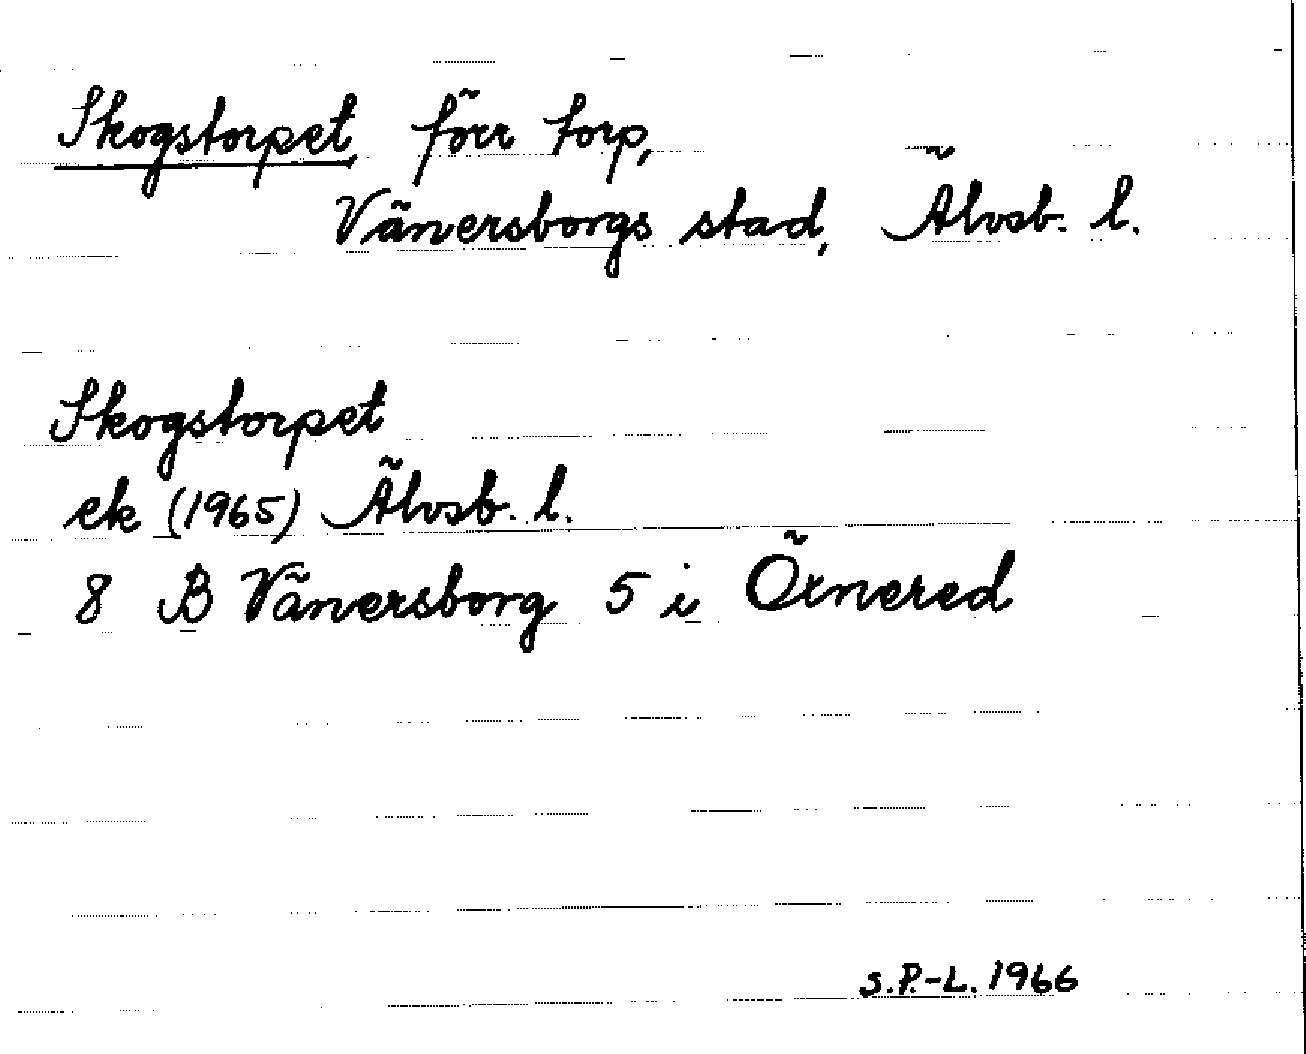 Skogstorpet, förr torp,
Vänersborgs stad, Älvsb. l.
Skogstorpet
ek (1965) Älvsb. l.
8 B Vänersborg 5 i Öxnered
S.P.-L. 1966